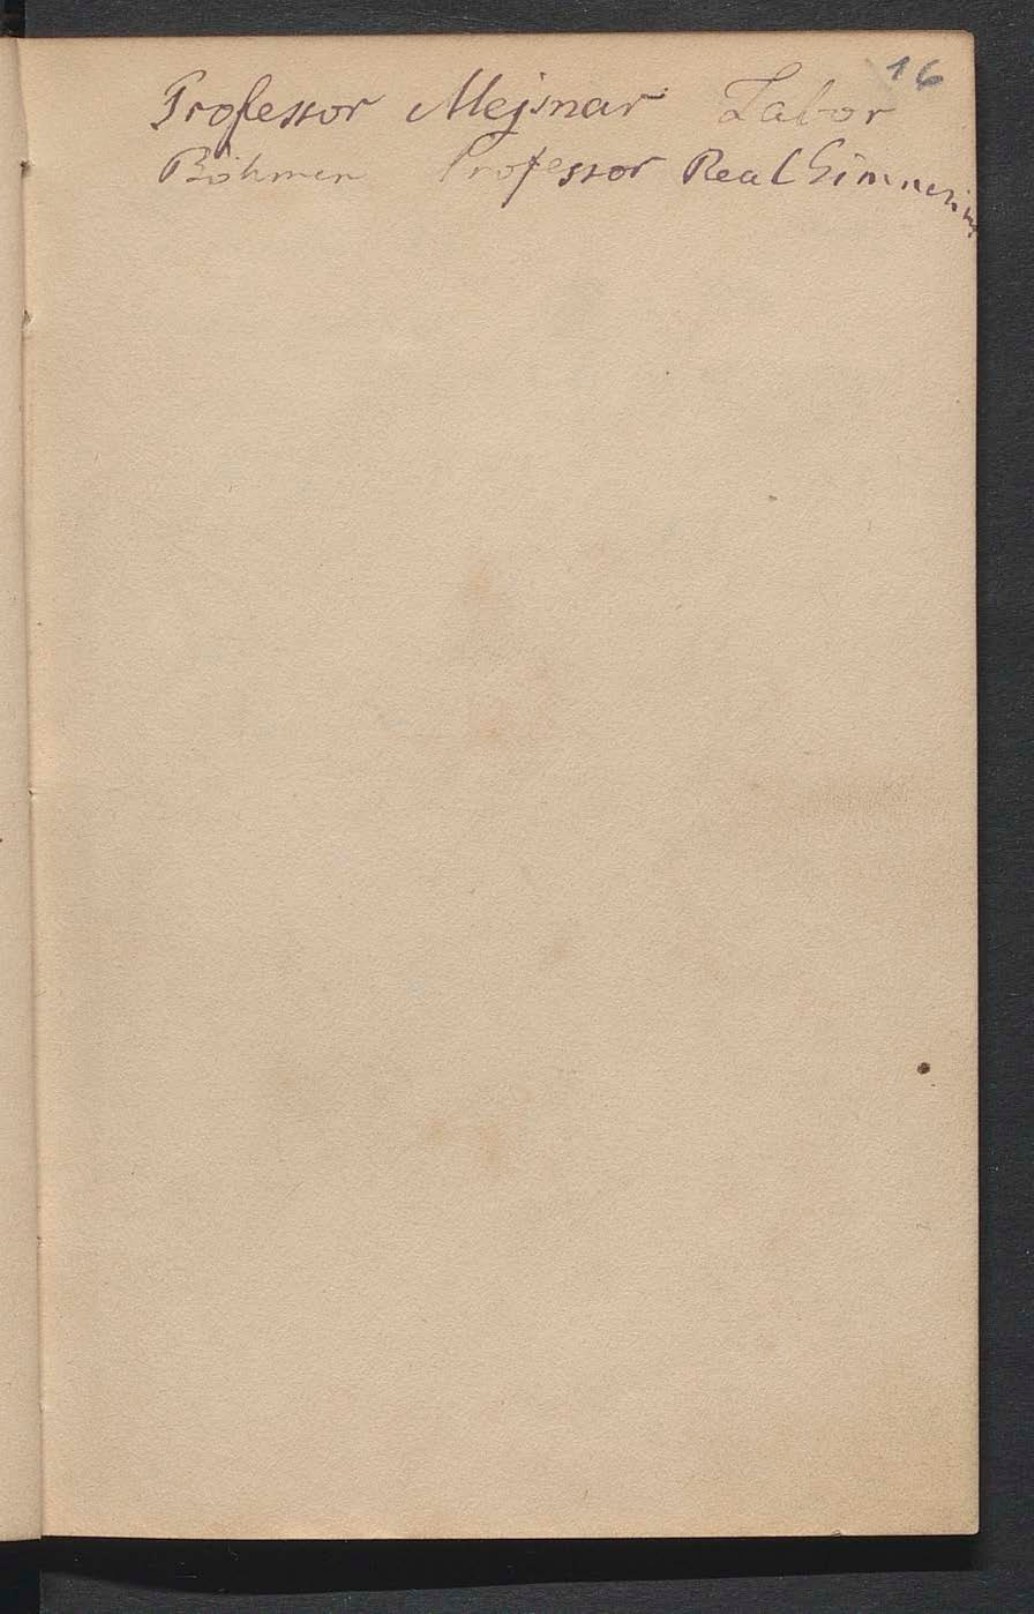 16
Professor Mejsnar Tabor
Böhmen Professor Real